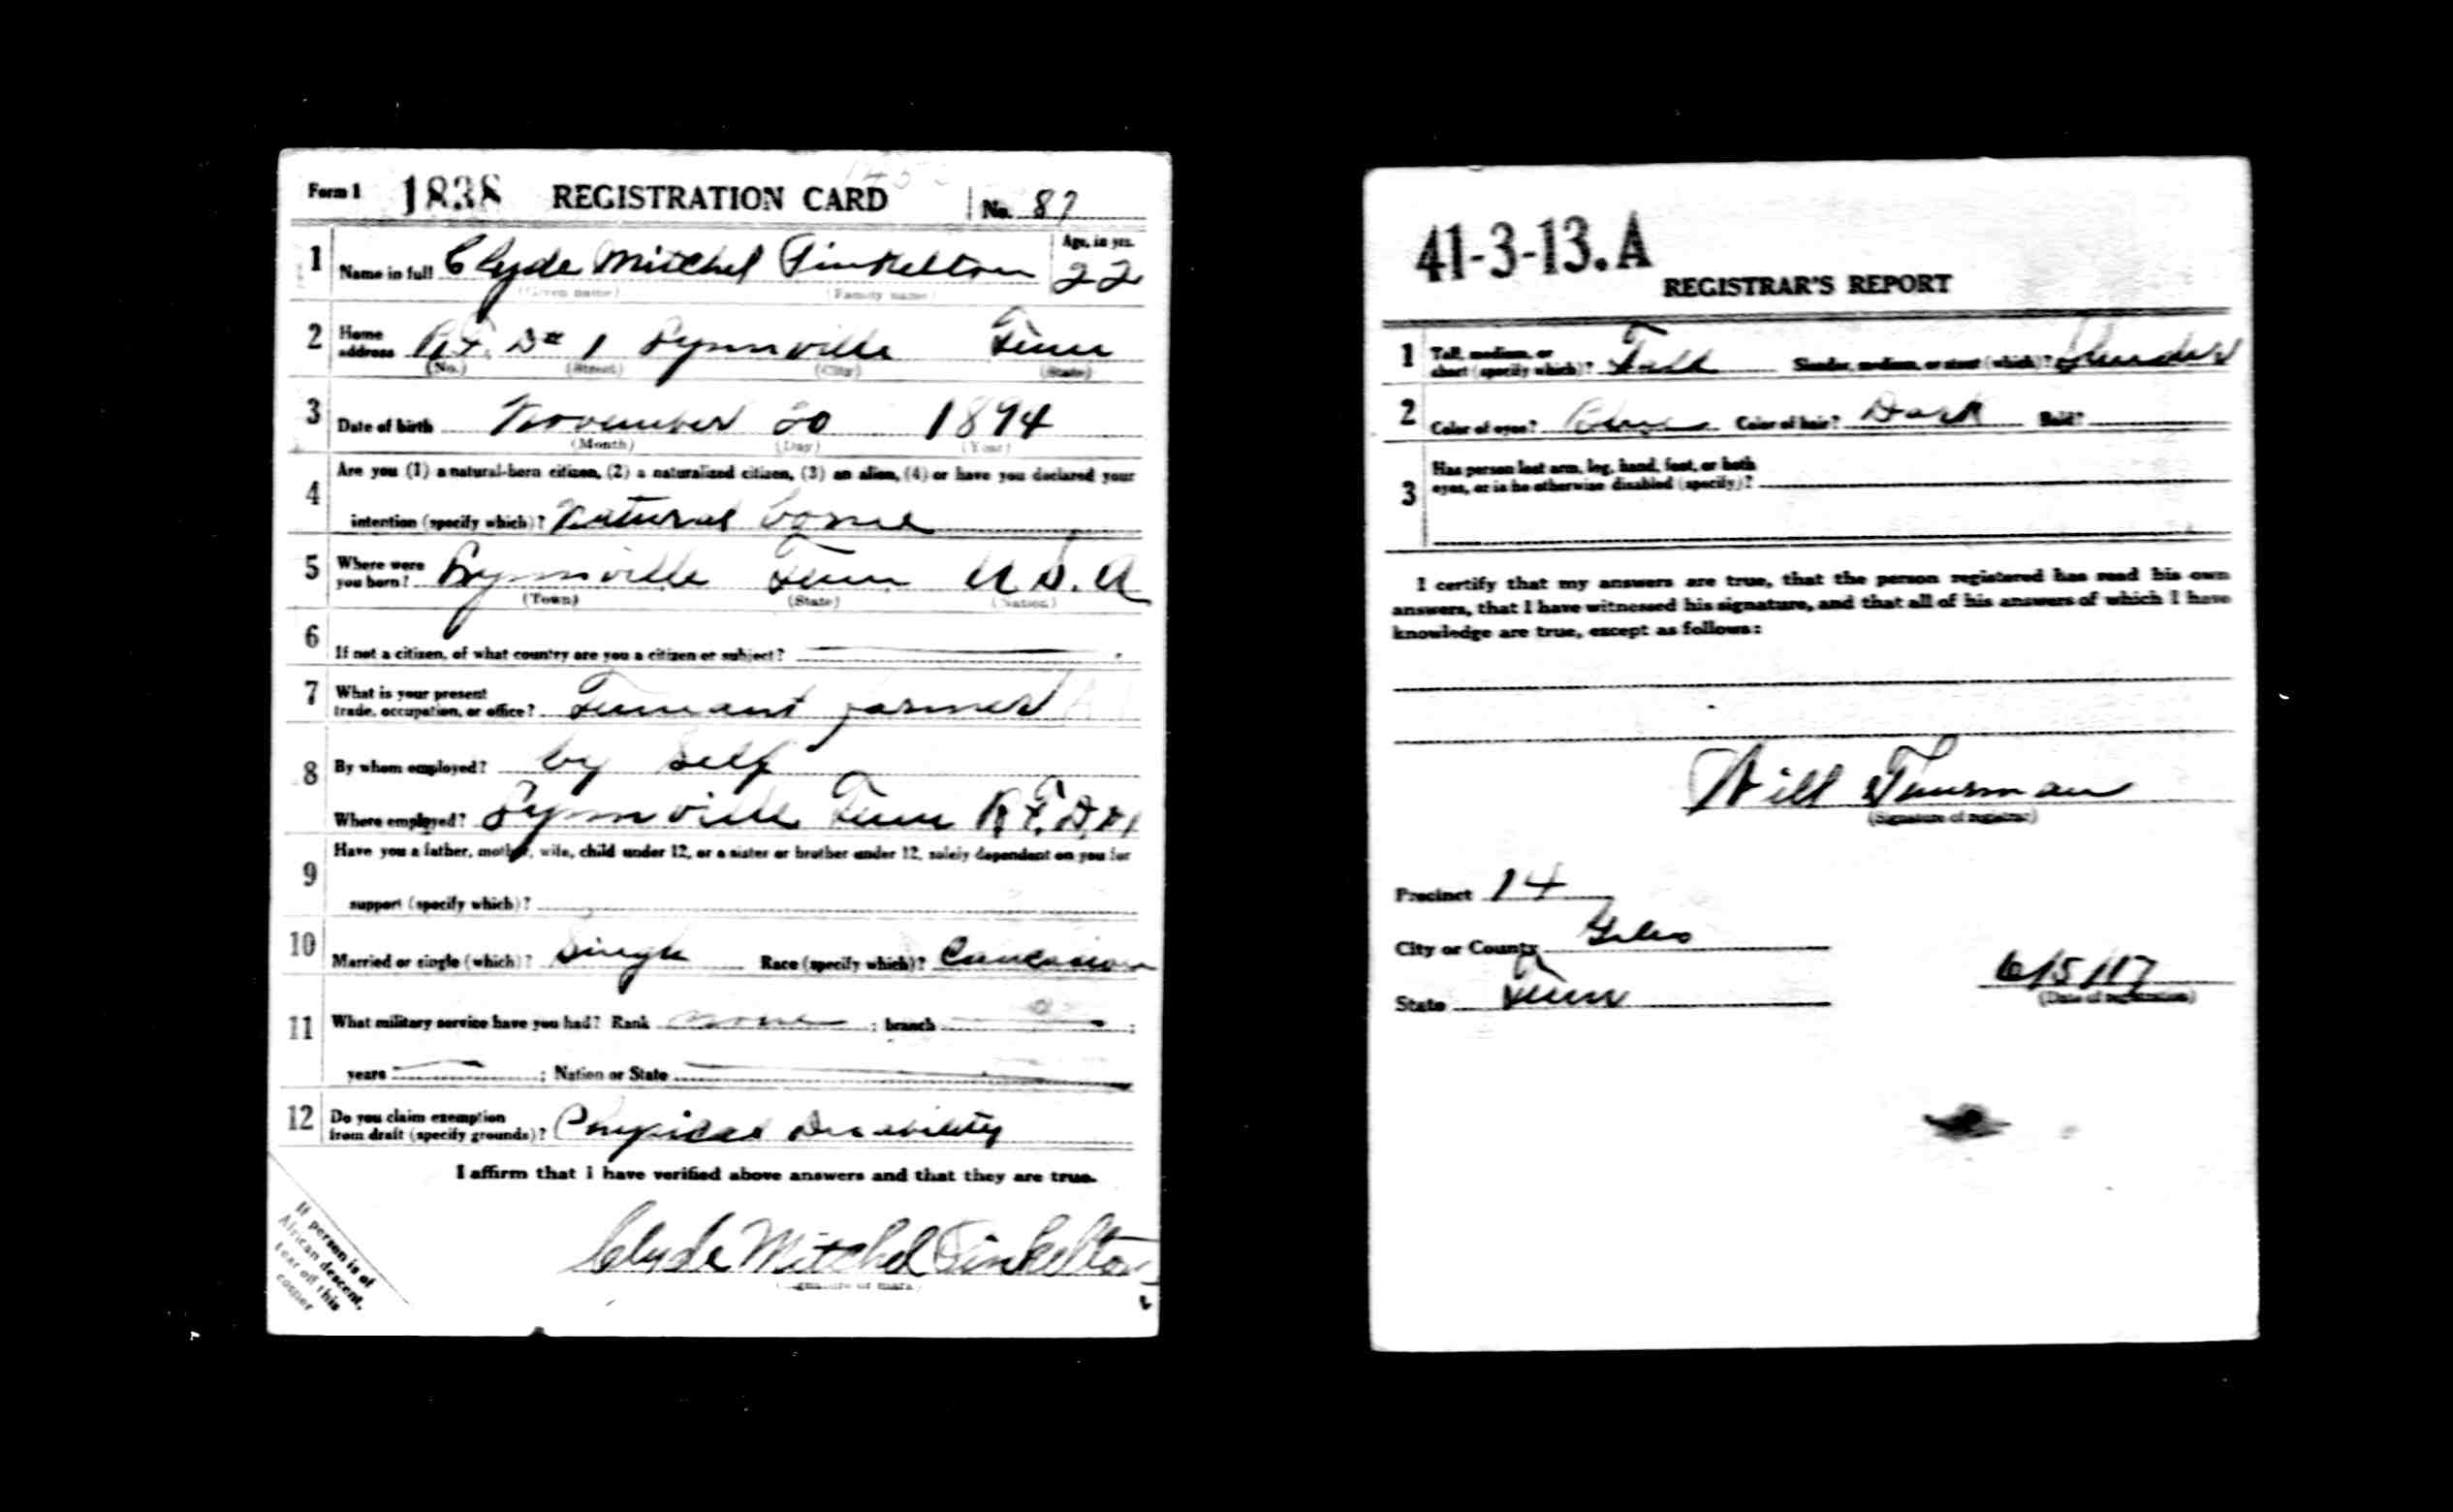 Form 1 1838 REGISTRATION CARD No. 87
1 Name in full Clyde Mitchel Tinkelton Age, in yrs. 22
(Given name) (Family name)
2 Home address R.F. D # 1 Lynnville Tenn
(No.) (Street) (City) (State)
3 Date of birth November 20 1894
(Month) (Day) (Year)
4 Are you (1) a natural-born citizen, (2) a naturalized citizen, (3) an alien, (4) or have you declared your
intention (specify which)? Natural borne
5 Where were you born? Lynnville Tenn U.S.A
(Town) (State) (Nation)
6 If not a citizen, of what country are you a citizen or subject?
7 What is your present trade, occupation, or office? Tennant farmer
8 By whom employed? by Self
Where employed? Lynnville Tenn R.F.D.#1
9 Have you a father, mother, wife, child under 12, or a sister or brother under 12, solely dependent on you for
support (specify which)?
10 Married or single (which)? Single Race (specify which)? Caucasion
11 What military service have you had? Rank none ; branch ;
years ; Nation or State
12 Do you claim exemption from draft (specify grounds)? Physical
I affirm that I have verified above answers and that they are true.
Clyde Mitchel Tinkelton
(Signature or mark)
If person is of
African descent,
tear off this
corner
41-3-13.A
REGISTRAR'S REPORT
1 Tall, medium, or short (specify which)? Tall Slender, medium, or stout (which)? Slender
2 Color of eyes? Blue Color of hair? Dark Bald?
3 Has person lost arm, leg, hand, foot, or both
eyes, or is he otherwise disabled (specify)?
I certify that my answers are true, that the person registered has read his own
answers, that I have witnessed his signature, and that all of his answers of which I have
knowledge are true, except as follows:
Will
(Signature of registrar)
Precinct 14
City or County Giles
State Tenn
6/5/17
(Date of registration)